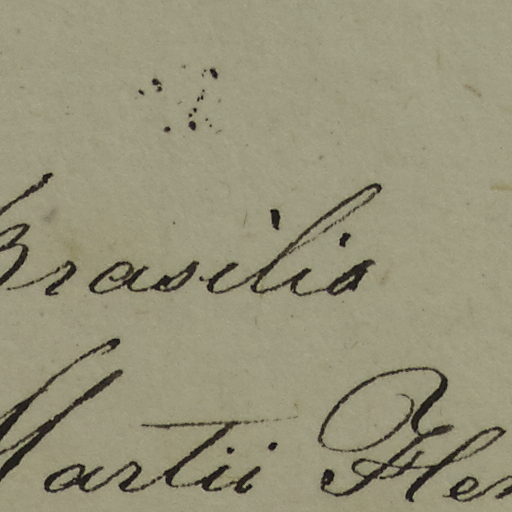 Brasilia
Martii Her